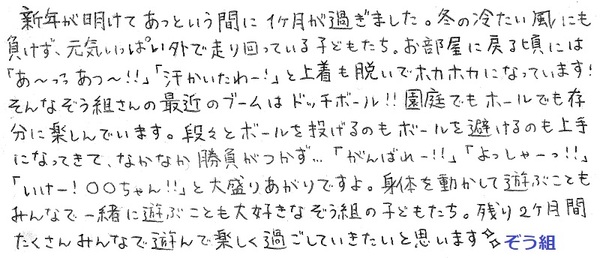 新年が明けてあっという間に1ケ月が過ぎました。冬の冷たい風にも
負けず、元気いっぱい外で走り回っている子どもたち。お部屋に戻る頃には
「あ～っっあつ～!!」「汗かいたわー!」と上着も脱いでホカホカになっています!
そんなぞう組さんの最近のブームはドッチボール!!園庭でもホールでも存
分に楽しんでいます。段々とボールを投げるのもボールを避けるのも上手
になってきて、なかなか勝負がつかず…「がんばれー!!」「よっしゃーっ!!」
「いけー!○○ちゃん!!」と大盛りあがりですよ。身体を動かして遊ぶことも
みんなで一緒に遊ぶことも大好きなぞう組の子どもたち。残り2ケ月間
たくさんみんなで遊んで楽しく過ごしていきたいと思います✨ぞう組